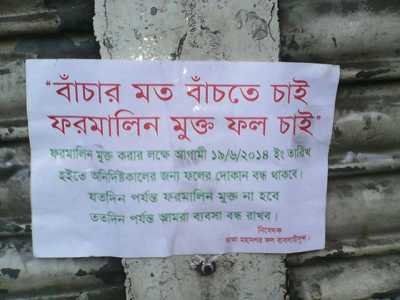 "বাঁচার মত বাঁচতে চাই
ফরমালিন মুক্ত ফল চাই"
ফরমালিন মুক্ত করার লক্ষে আগামী ১৯/৬/২০১৪ ইং তারিখ
হইতে অনির্দিষ্টকালের জন্য ফলের দোকান বন্ধ থাকবে।
যতদিন পর্যন্ত ফরমালিন মুক্ত না হবে
ততদিন পর্যন্ত আমরা ব্যবসা বন্ধ রাখব।
নিবেদক
ঢাকা মহানগর ফল ব্যবসায়ীবৃন্দ।